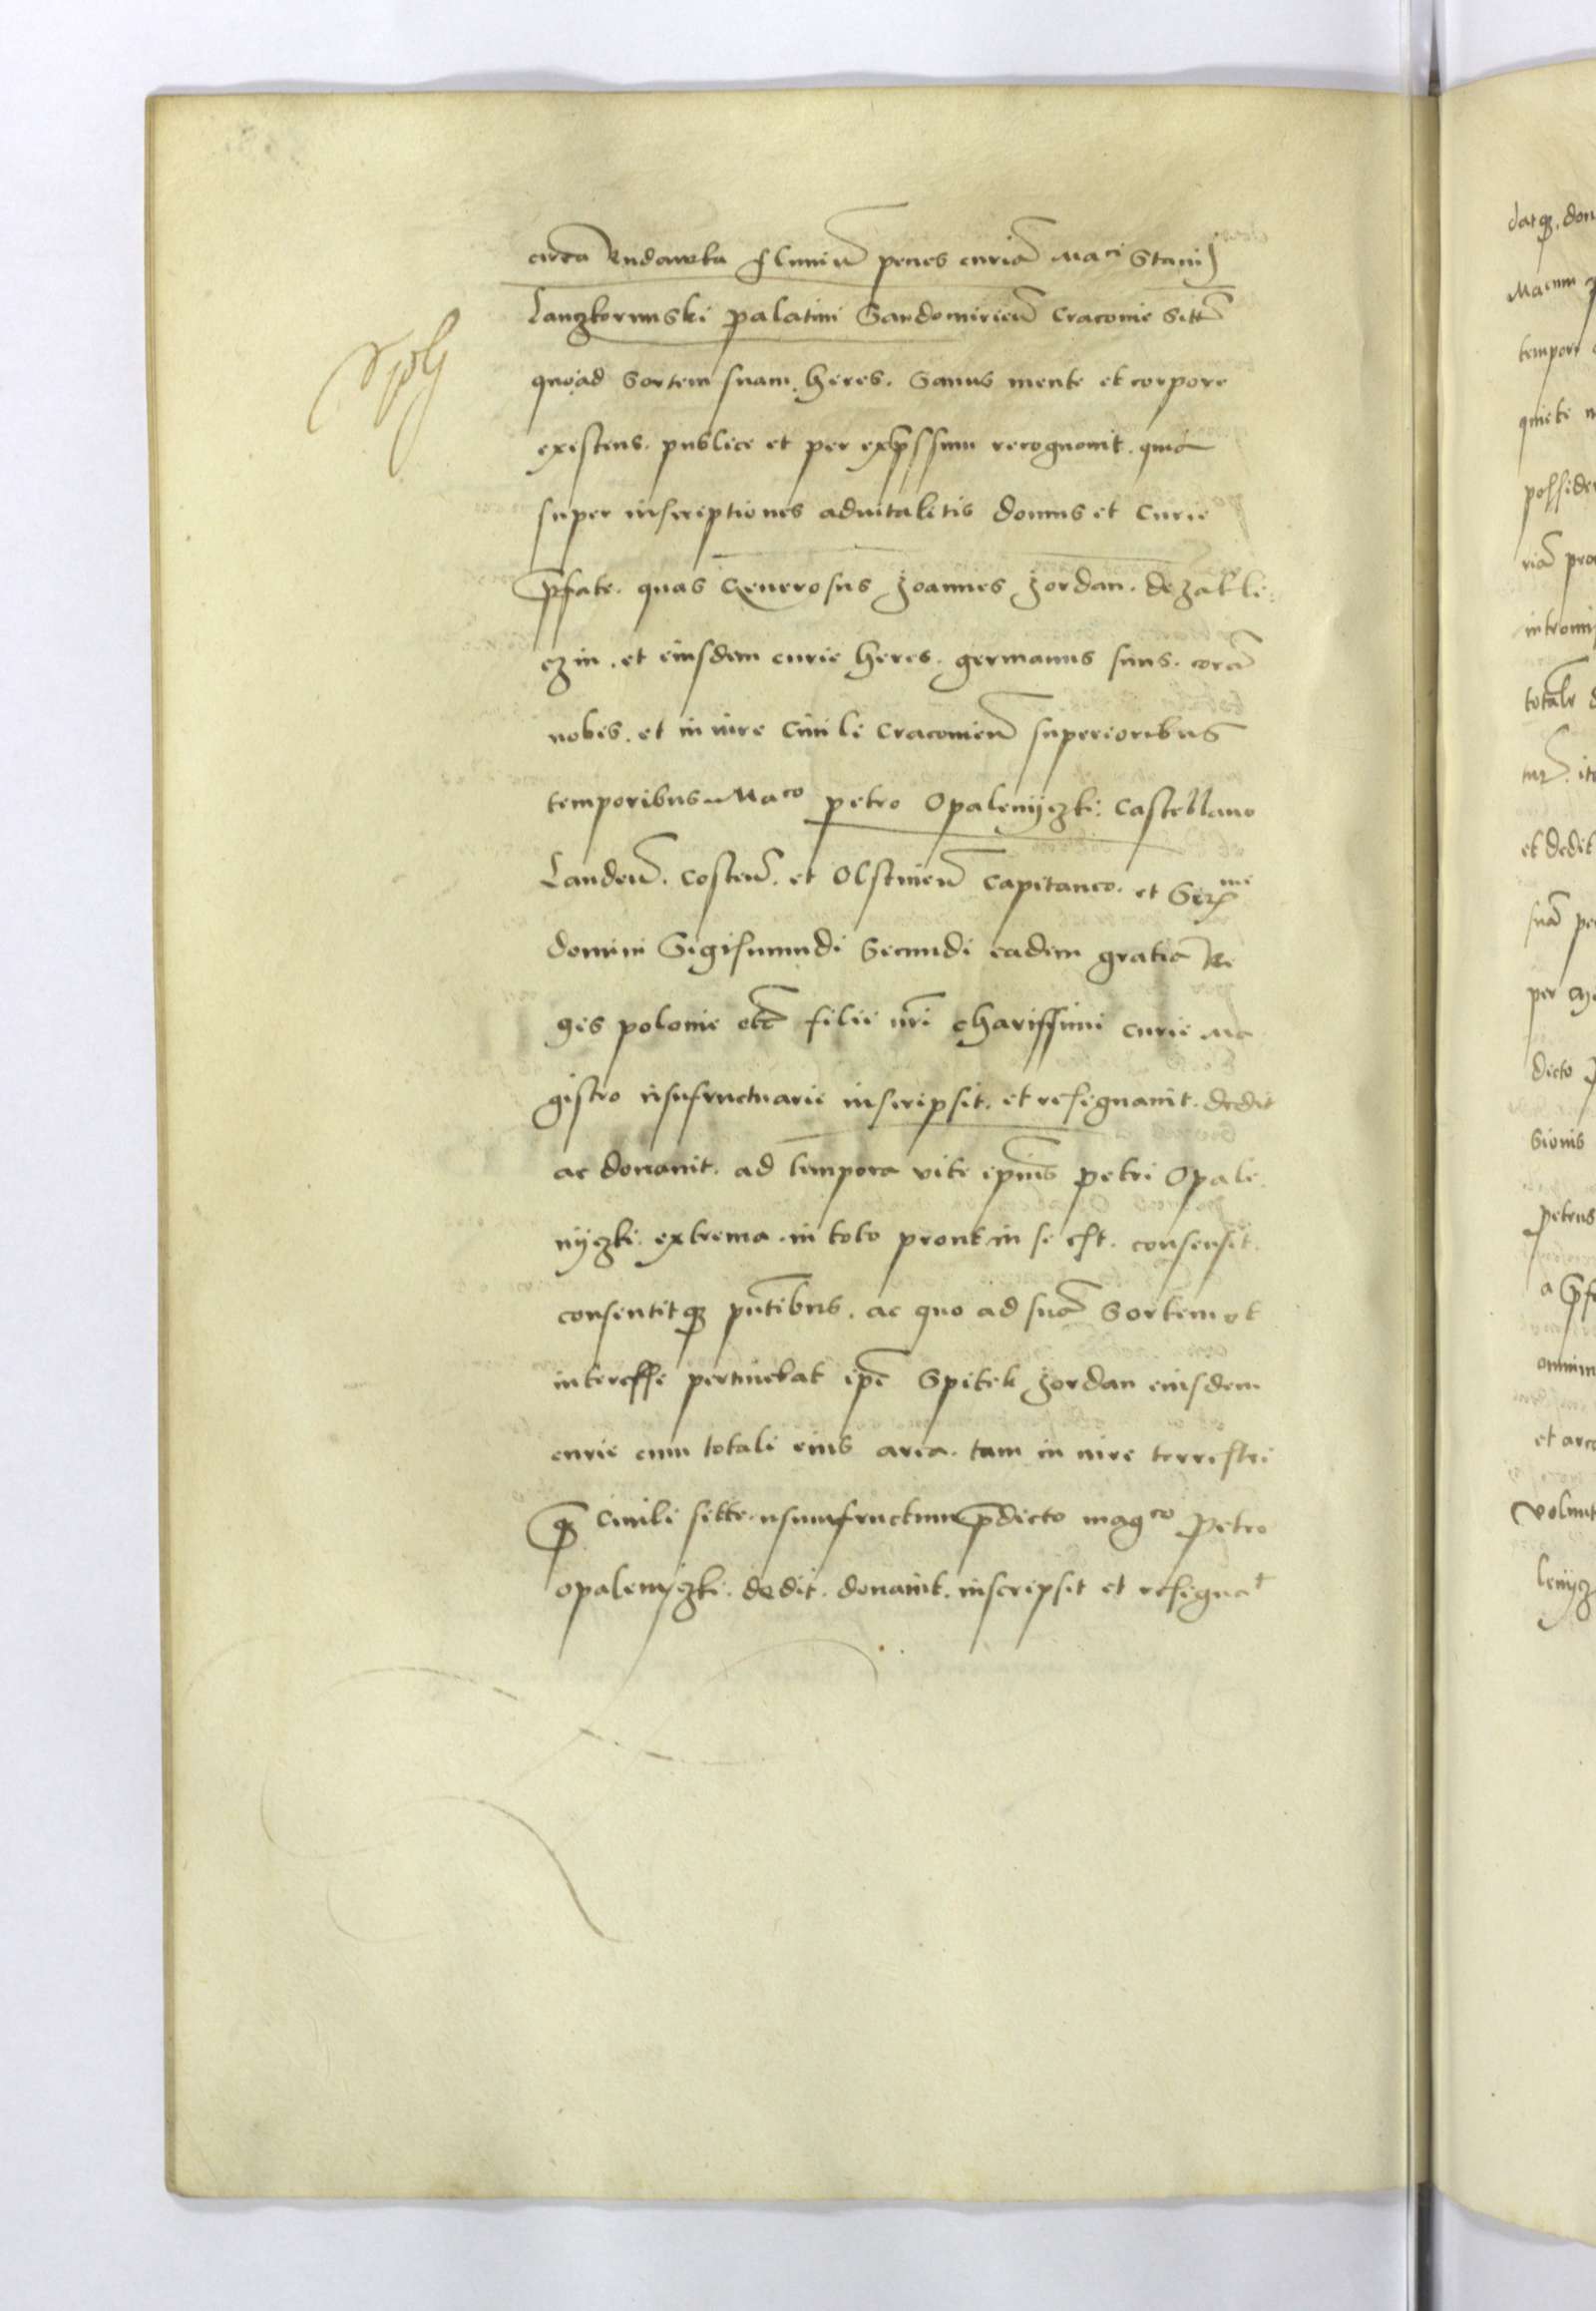 circa Rudawka fluviu penes curia Maci Stanis
Lanczkorunski palatini Sandomirien Cracovie sitta
quoad sortem suam heres. Sanus mente et corpore
existens. publice et per expssum recognovit. quia
super inscriptiones advitalitis domus et Curie
pfate. quas Generosus Joannes Jordan. de Zakli
czin. et eiusdem curie heres. germanus suus. cora
nobis. et in iure Civili Cracovien superioribus
temporibus Maco petro Opalenyczki Castellano
Landen. Costen. et Olstinen Capitaneo. et Sermi
domini Sigismundi Secundi eadem gratia Re
gis polonie etc filii nri charissimi curie Ma
gistro usufructuarie inscripsit. et resignavit. dedit
ac donavit. ad tempora vite ipius petri Opale
nyczki extrema. in toto prout in se est. consensit.
consentitq pntibus. ac quo ad sua Sortem et
interesse pertinebat ipe Spitek Jordan eiusdem
curie cum totali eius area. tam in iure terrestri
q Civili sitte. usumfructum pdicto magco Petro
opalenyczki. dedit. donavit. inscripsit et resignat
datq. don
Macum
tempor
quiete
posside
ria
intromi
totale
tur. ite
et dedit
sua pe
per
dicto
sionis
petrus
a pf
omnim
et arc
volunt
lenycz